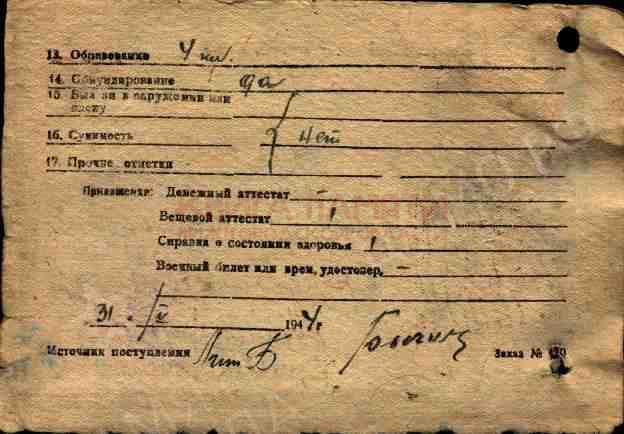 13. Образование 4 кл.
14. Обмундирование да
15. Был ли в окружении или
плену
16. Судимость нет
17. Прочие отметки
Приложения: Денежный аттестат —
Вещевой аттестат 1
Справка о состоянии здоровья 1
Военный билет или врем. удостовер. —
31. 1944 г
Источник поступления
Заказ №